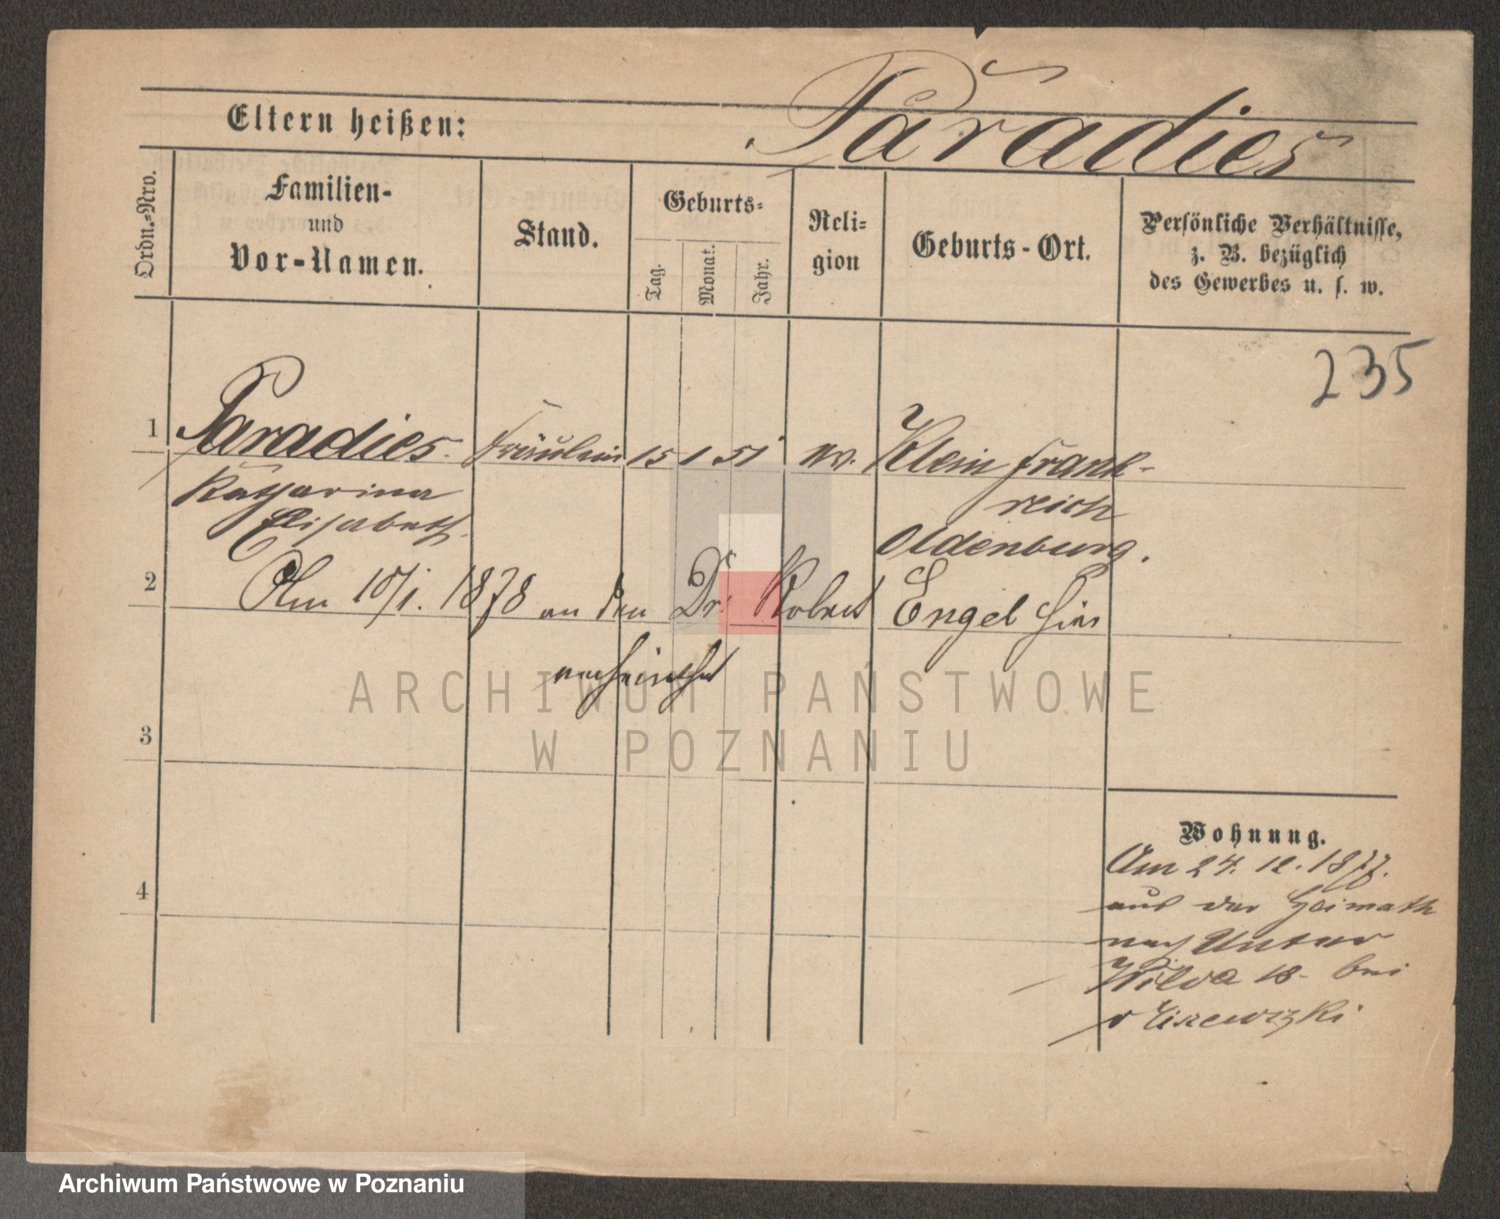 Paradies
Eltern heißen:
Ordn.=Nro.
Familien-
und
Vor-Namen.
Stand.
Geburts=
Tag.
Monat.
Jahr.
Reli=
gion
Geburts-Ort.
Persönliche Verhältnisse,
z. B. bezüglich
des Gewerbes u. s. w.
235
1 Paradies Fräulein 15 1 51 ev. Klein Frank-
Katharina reich
Elisabeth Oldenburg.
2 Am 10/1. 1878 an den Dr. Robert Engel hier
verheirathet
3
4
Wohnung.
Am 24. 12. 1877.
aus der Heimath
nach Unter
Wilda 18 bei
ARCHIWUM PAŃSTWOWE
W POZNANIU
Archiwum Państwowe w Poznaniu